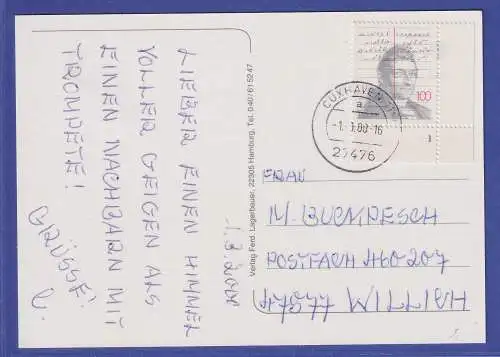 LIEBER EINEN HIMMEL
VOLLER GEIGEN ALS
EINEN NACHBARN MIT
TROMPETE!
GRÜSSE!
1.3.2000
Verlag Ferd. Lagerbauer, 22905 Hamburg, Tel. 040/61 52 47
CUXHAVEN
a
-1.-3.00-16
27476
100
1
FRAU
M. BUCKPESCH
POSTFACH 460207
47877 WILLICH